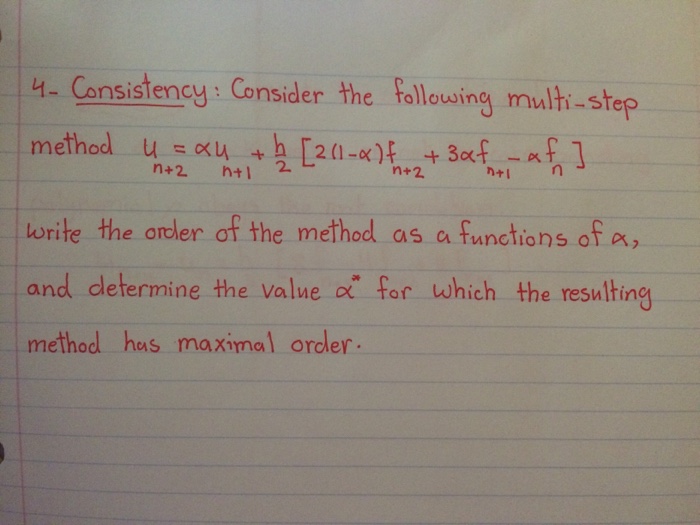 4- Consistency: Consider the following multi-step
method u_{n+2} = αu_{n+1} + h/2 [2(1-α)f_{n+2} + 3αf_{n+1} - αf_n]
write the order of the method as a functions of α,
and determine the value α* for which the resulting
method has maximal order.